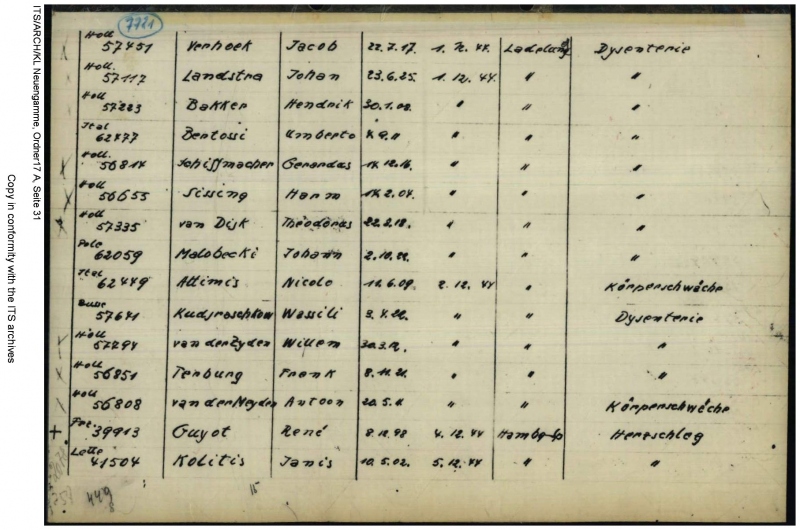 ITS/ARCH/KL Neuengamme, Ordner17 A, Seite 31
Copy in conformity with the ITS archives
7721
Holl 57451 Verhoek Jacob 22.7.17. 1.12.44. Ladelund Dysenterie
Holl. 57117 Landstra Johan 23.6.25. 1.12.44. " "
Holl 57223 Bakker Hendrik 30.1.08. " " "
Ital 62477 Bertossi Umberto " " "
Holl. 56814 Schiffmacher Gerardas 14.12.16. " " "
Holl 56655 Sissing Harm 14.2.04. " " "
Holl 57335 van Dijk Theodorus 22.2.18. " " "
Pole 62059 Malobecki Johann 2.10.21. " " "
Ital 62449 Attimis Nicolo 12.6.09. 2.12.44 " Körperschwäche
Russe 57641 Kudjroschkow Wassili 3.4.22. " " Dysenterie
Holl 57494 van der Zyden Willem " " "
Holl 56851 Terburg Frenk 8.11.21. " " "
Holl 56808 van der Meyden Antoon 20.5.11 " " Körperschwäche
+ Frz. 39913 Guyot René 8.12.98 4.12.44 Hambg-Sp Herzschlag
Lette 41504 Kolitis Janis 10.5.02. 5.12.44 " "
449
15